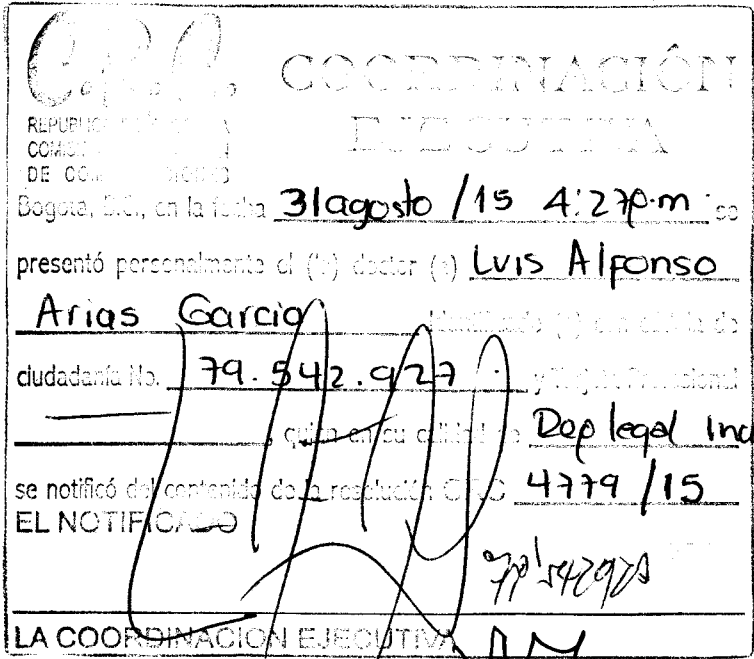 C.R.C.
COORDINACIÓN
EJECUTIVA
REPUBLICA
COMISIÓN
DE COMUNICACIONES
Bogotá, D.C., en la fecha 31 agosto /15 4:27p.m. se
presentó personalmente el (la) doctor (a) Luis Alfonso
Arias Garcia identificado (a) con cédula de
ciudadanía No. 79.542.927 y Tarjeta Profesional
, quien en su calidad de Rep legal
se notificó del contenido de la resolución CRC 4779 /15
EL NOTIFICADO
LA COORDINACION EJECUTIVA